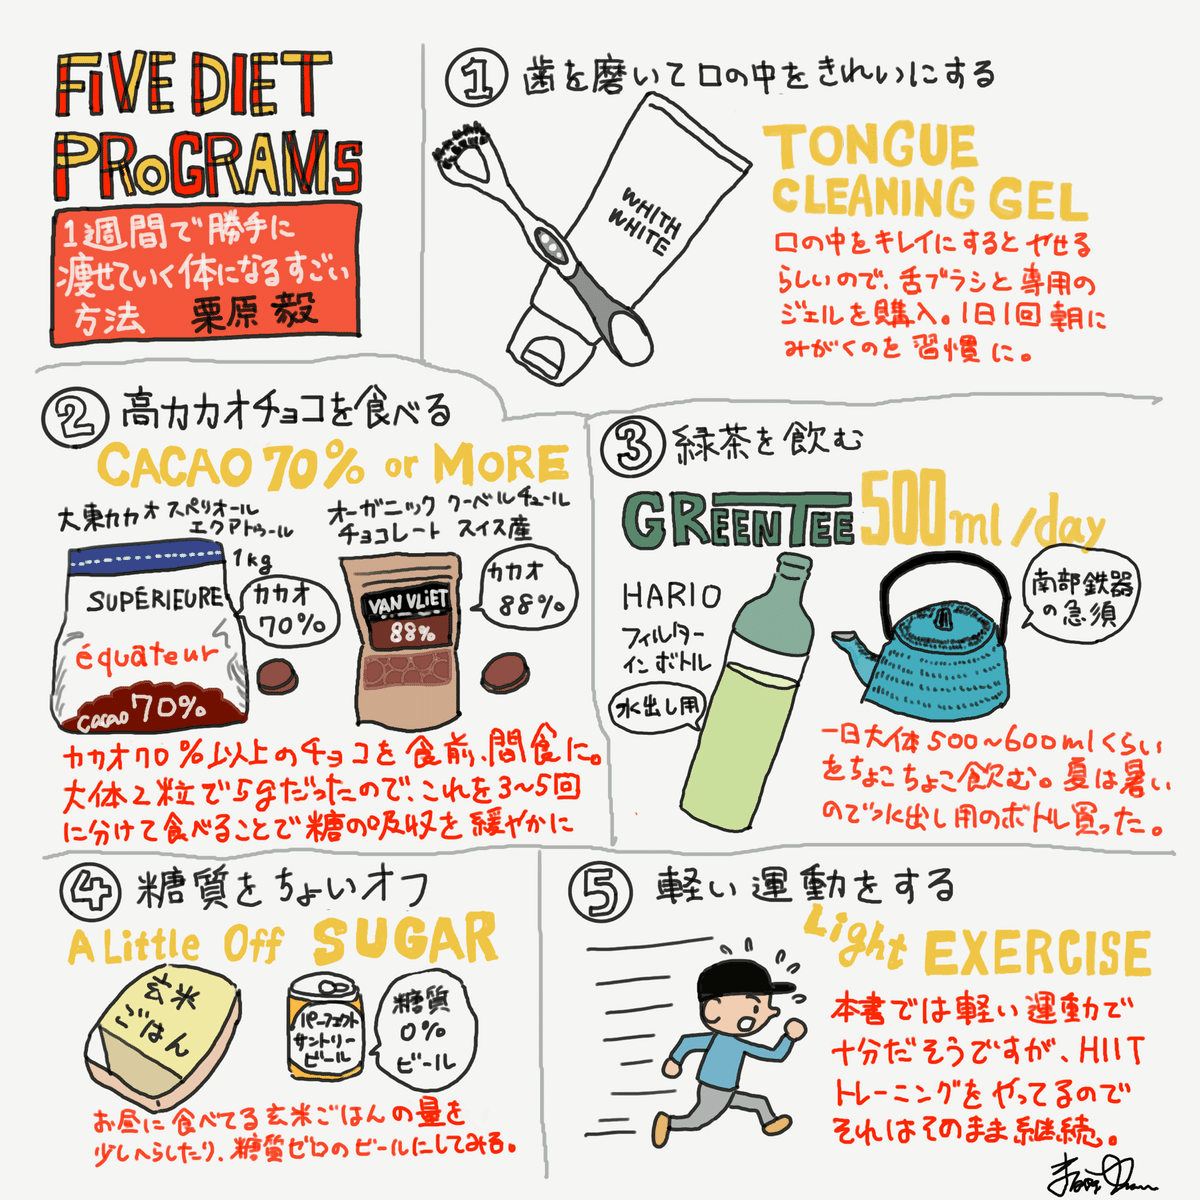 FiVE DIET
PRoGRAMs
1週間で勝手に
痩せていく体になるすごい
方法 栗原 毅
① 歯を磨いて口の中をきれいにする
WHITH
WHITE
TONGUE
CLEANING GEL
口の中をキレイにするとやせる
らしいので、舌ブラシと専用の
ジェルを購入。1日1回朝に
みがくのを習慣に。
② 高カカオチョコを食べる
CACAO 70% or MORE
大東カカオ スペリオール
エクアトゥール
1kg
SUPÉRIEURE
équateur
cacao 70%
カカオ
70%
オーガニック クーベルチュール
チョコレート スイス産
VAN VLiET
88%
カカオ
88%
カカオ70%以上のチョコを食前、間食に。
大体2粒で5gだったので、これを3〜5回
に分けて食べることで糖の吸収を緩やかに
③ 緑茶を飲む
GREENTEE 500ml/day
HARIO
フィルター
インボトル
水出し用
南部鉄器
の急須
一日大体500〜600mlくらい
をちょこちょこ飲む。夏は暑い
ので水出し用のボトル買った。
④ 糖質をちょいオフ
A Little Off SUGAR
玄米
ごはん
パーフェクト
サントリー
ビール
糖質
0%
ビール
お昼に食べてる玄米ごはんの量を
少しへらしたり、糖質ゼロのビールにしてみる。
⑤ 軽い運動をする
Light EXERCISE
本書では軽い運動で
十分だそうですが、HIIT
トレーニングをやってるので
それはそのまま継続。